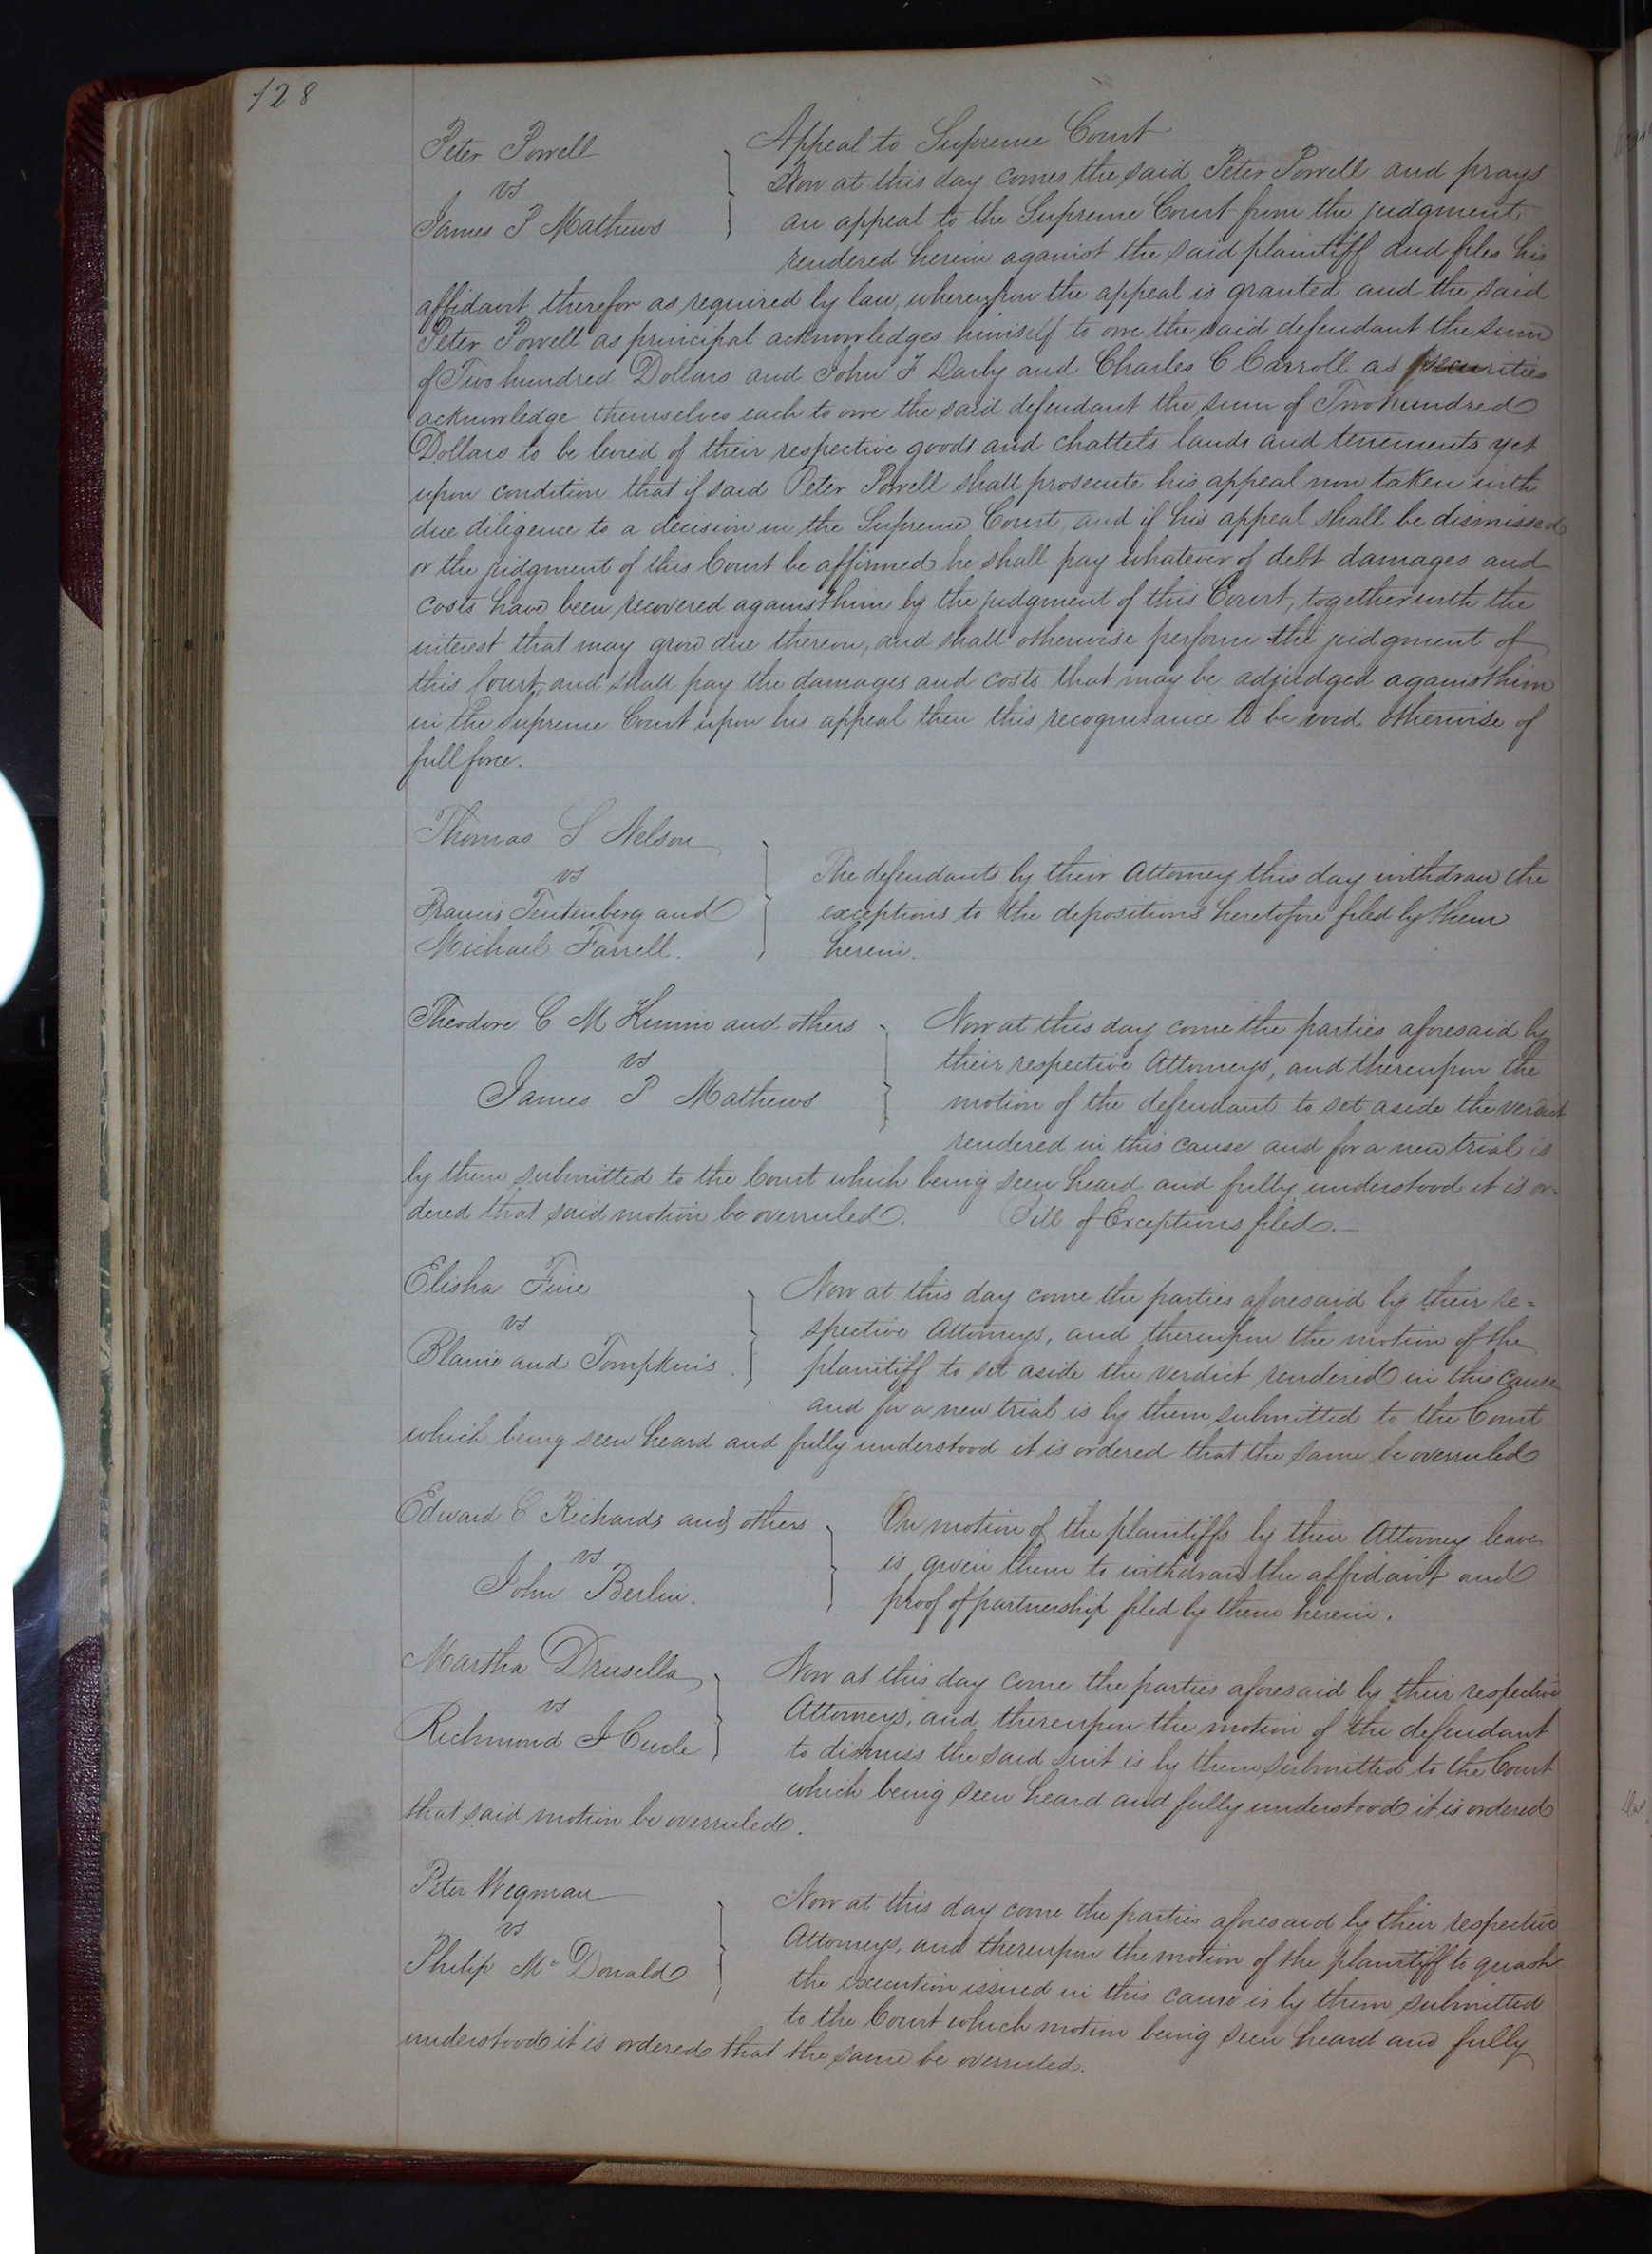 128
Peter Powell
vs
James P Mathews
Appeal to Supreme Court
Now at this day comes the said Peter Powell and prays
an appeal to the Supreme Court from the judgment
rendered herein against the said plaintiff and files his
affidavit therefor as required by law, whereupon the appeal is granted and the said
Peter Powell as principal acknowledges himself to owe the said defendant the sum
of Two hundred Dollars and John F Darby and Charles C Carroll as securities
acknowledge themselves each to owe the said defendant the sum of Two hundred
Dollars to be levied of their respective goods and chattels lands and tenements yet
upon condition that if said Peter Powell shall prosecute his appeal now taken with
due diligence to a decision in the Supreme Court, and if his appeal shall be dismissed
or the judgment of this Court be affirmed he shall pay whatever of debt damages and
costs have been recovered against him by the judgment of this Court, together with the
interest that may grow due thereon, and shall otherwise perform the judgment of
this Court, and shall pay the damages and costs that may be adjudged against him
in the Supreme Court upon his appeal then this recognisance to be void otherwise of
full force.
Thomas S Nelson
vs
Francis Tentenberg and
Michael Farrell.
The defendants by their Attorney this day withdraw the
exceptions to the depositions heretofore filed by them
herein.
Theodore C M Kimm and others
vs
James P Mathews
Now at this day come the parties aforesaid by
their respective Attorneys, and thereupon the
motion of the defendant to set aside the verdict
rendered in this cause and for a new trial is
by them submitted to the Court which being seen heard and fully understood it is or-
dered that said motion be overruled. Bill of Exceptions filed.
Elisha Fine
vs
Blaine and Tompkins.
Now at this day come the parties aforesaid by their re=
spective Attorneys, and thereupon the motion of the
plaintiff to set aside the verdict rendered in this cause
and for a new trial is by them submitted to the Court
which being seen heard and fully understood it is ordered that the same be overruled
Edward C Richards and others
vs
John Berlin.
On motion of the plaintiffs by their Attorney leave
is given them to withdraw the affidavit and
proof of partnership filed by them herein.
Martha Drusella
vs
Richmond J Curle
Now at this day come the parties aforesaid by their respective
Attorneys, and thereupon the motion of the defendant
to dismiss the said suit is by them submitted to the Court
which being seen heard and fully understood it is ordered
that said motion be overruled.
Peter Wegman
vs
Philip Mc Donald
Now at this day come the parties aforesaid by their respective
Attorneys, and thereupon the motion of the plaintiff to quash
the execution issued in this cause is by them submitted
to the Court which motion being seen heard and fully
understood it is ordered that the same be overruled.